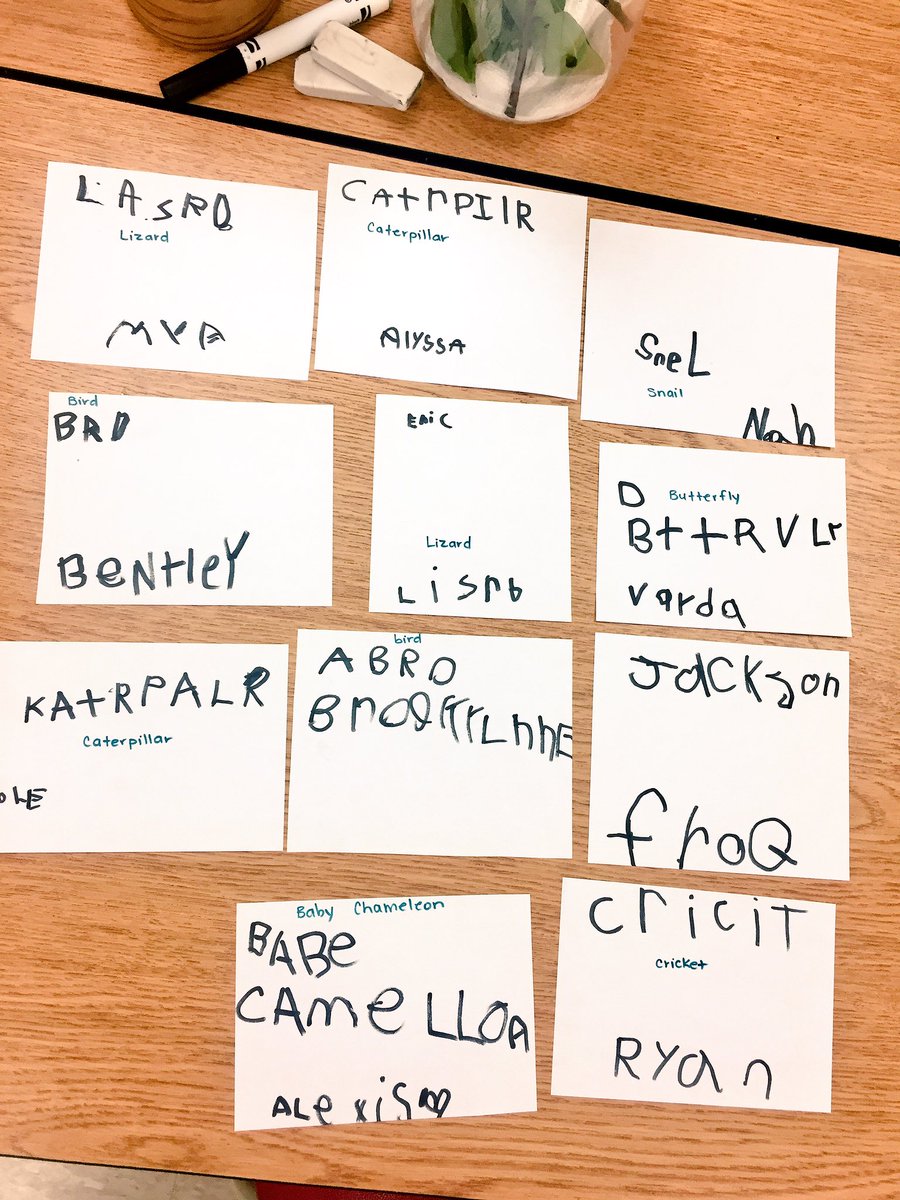 LASRD
Lizard
MYA
CAtnPIlR
Caterpillar
AlYSSA
SneL
Snail
Noah
Bird
BRD
BeNtleY
ERiC
Lizard
Lisrb
D Butterfly
BttRVLr
varda
KAtRPALR
Caterpillar
bird
ABRD
JacKson
froQ
Baby Chameleon
BABe
CAmeLLOA
ALexis
CriciT
cricket
RYan